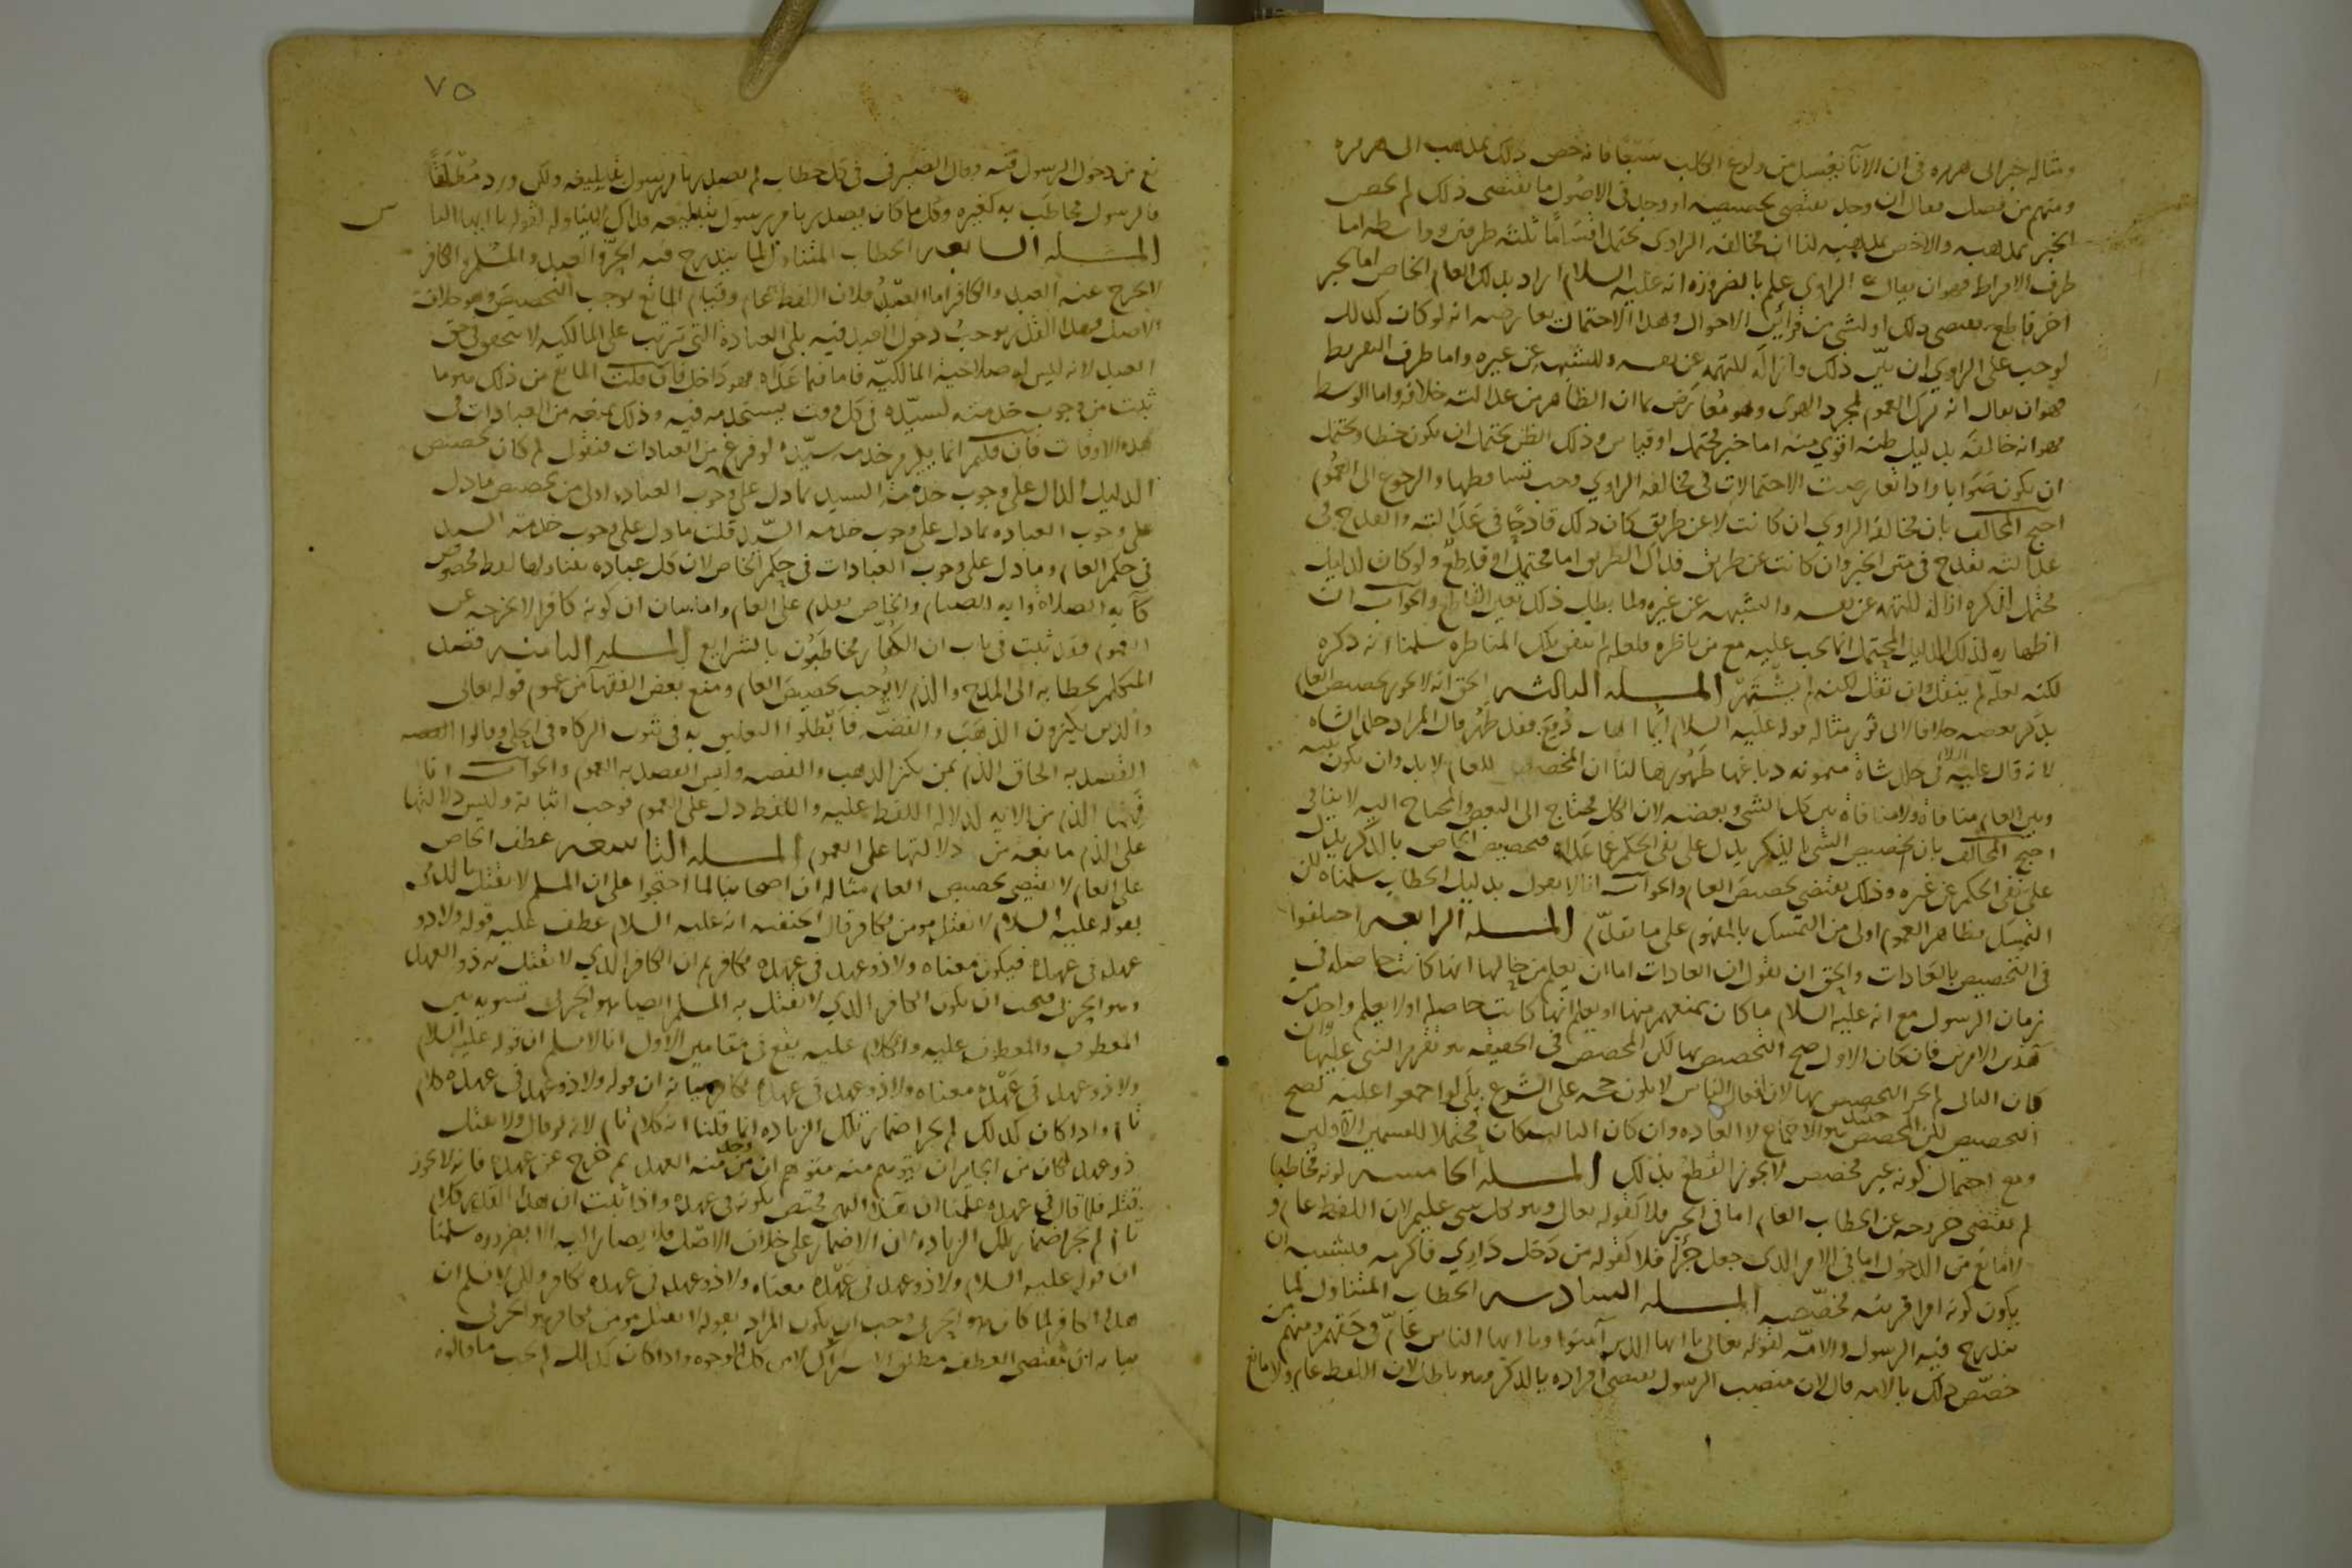 ومثاله خبر ابى هريره فى ان الانآ يغسل من ولوغ الكلب سبعا فانه خص ذلك بمذهب ابى هريره
ومنهم من فصل فقال ان وجد ما يقتضى تخصيصه او وجد فى الاصول ما يقتضى ذلك لم يخص
الخبر بمذهبه والا خص بمذهبه لنا ان مخالفه الراوى تحتمل اقسامًا ثلثه طرفين وواسطه اما
طرف الافراط فهو ان يقال الراوى علم بالضروره انه عليه السلام اراد بذلك العام الخاص اما بخبر
اخر قاطع يقتضى ذلك او لشى من قرائن الاحوال وهذا الاحتمال يعارضه انه لو كان كذلك
لوجب على الراوى ان يبيّن ذلك وازالة للتهمه عن نفسه وللشبهه عن غيره واما طرف التفريط
فهو ان يقال انه ترك العموم لمجرد الهوى وهو مُعارَض بما ان الظاهر من عدالته خلافه واما الوسط
فهو انه خالفه بدليل ظنه اقوى منه اما خبر محتمل او قياس وذلك الظن يحتمل ان يكون خطا ويحتمل
ان يكون صَوَابا واذا تعارضت الاحتمالات فى مخالفه الراوي وجب تساقطها والرجوع الى العموم
احتج المخالف بان مخالفه الراوي ان كانت لا عن طريق كان ذلك قادحًا فى عَدَالته والقدح فى
عدالته يقدح فى متن الخبر وان كانت عن طريق فذاك الطريق اما محتمل او قاطعٌ ولو كان الدليل
محتملا لذكره ازالة للتهمه عن نفسه والشبهه عن غيره ولما بطل ذلك تعين القاطع والجواب ان
اظهاره لذلك الدليل المحتمل انما يجب عليه مع من ناظره فلعله لم تتفق تلك المناظره سلمنا انه ذكره
لكنه لعلّه لم يُنقل وان نقل لكنه لم يشتهر المسله الثالثه الحق انه لا يجوز تخصيص العام
بذكر بعضه خلافا لابى ثور مثاله قوله عليه السلام ايّما اهاب دُبِغَ فقد طَهُر قال المراد جلد الشاه
لانه قال عليه السلام فى جلد شاة ميمونه دباغها طَهُورها لنا ان المخصص للعام لا بد وان يكون بينه
وبين العام منافاة ولا منافاة بين كل الشى وبعضه لان الكل محتاج الى البعض والمحتاج اليه لا ينافى
احتج المخالف بان تخصيص الشى بالذكر يدل على نفى الحكم عما عداه فتخصيص الخاص بالذكر يدل
على نفى الحكم عن غيره وذلك يقتضى تخصيص العام والجواب انا لا نقول بدليل الخطاب سلمناه لكن
التمسك بظاهر العموم اولى من التمسك بالمفهوم على ما تقدّم المسله الرابعه اختلفوا
فى التخصيص بالعَادات والحق ان نقول ان العادات اما ان يعلم من حالها انها كانت حاصله فى
زمان الرسول مع انه عليه السلام ما كان يمنعهم منها او يعلم انها كانت حاصله او لا يعلم واحد من
هَذين الامرين فان كان الاول صح التخصيص بها لكن المخصص فى الحقيقه هو تقرير النبى عليها وان
كان الثانى لم يجز التخصيص بها لان افعال الناس لا يكون حجه على الشرع بلَى لو اجمعوا عليه لصح
التخصيص لكن المخصص حينئذ هو الاجماع لا العاده وان كان الثالث كان مُحتملا للقسمين الاولين
ومع احتمال كونه غير مخصص لا يجوز القطعُ بذلك المسله الخامسه كونه مخاطِبا
لم يقتضى خروجه عن الخطاب العام اما فى الخبر فلا كقوله تعالى وهو بكل شى عليم لان اللفظ عام و
لا مانع من الدخول اما فى الامر الذى جعل جَزَآ فلا كقوله من دَخل دَاري فاكرمه فيشبه ان
يكون كونه امرا قرينه مخصّصه المسله السادسه الخطاب المتناول لما
يندرج فيه الرسول والامّه كقوله تعالى يا ايها الذين آمنوا ويا ايها الناس عَامّ فى حقهم ومنهم من
خصّص ذلك بالامه قال لان منصب الرسول يقتضى افراده بالذكر وهو باطل لان اللفظ عام ولا مانع
٧٥
نع من دخول الرسول فيه وقال الصيرفى فى كل خطاب لم يصدر بامر الرسول بتبليغه ولكن ورد مُطلَقًا
فالرسول مخاطَب به كغيره وكل ما كان يصدر بامر الرسول بتبليغه فذاك لا يتناوله كقوله يا ايها النا
س
المسله السابعه الخطاب المتناول لما يندرج فيه الحرّ والعبد والمسلم والكافر
لا يخرج عنه العبد والكافر اما العبدُ فلان اللفظ عام وقيام المانع يوجب التخصيص وهو خلاف
الاصل فهذا القدر يوجب دخول العبد فيه بلى العبادة التى تترتب على المالكيه لا تتحقق فى حق
العبد لانه ليس له صلاحية المالكيّه فاما فيما عَدَاه فهو دَاخل فان قلت المانع من ذلك هو ما
ثبت من وجوب خدمته لسيّده فى كل وقت يستخدمه فيه وذلك يمنعه من العبادات فى
هذه الاوقات فان قلتم انما يلزم خدمه سيّده لو فرغ من العبادات فنقول لم كان تخصيص
الدليل الدال على وجوب خدمة السيد بما دل على وجوب العباده اولى من تخصيص ما دل
على وجوب العباده بما دل على وجوب خدمه السيّد قلت ما دل على وجوب خدمة السيد
فى حكم العام وما دل على وجوب العبادات فى حكم الخاص لان كل عباده يتناولها لفظ مخصوص
كآيه الصلاة وايه الصيام والخاص يقدم على العام واما بيان ان كونه كافرا لا يخرجه عن
العموم فقد ثبت فى باب ان الكفّار مُخاطبُون بالشرايع المسله الثامنه قصد
المتكلم بخطابه الى المدح والذم لا يُوجب تخصيصَ العام ومنع بعض الفقهآ من عموم قوله تعالى
والذين يكنزون الذهَبَ والفضّه فابطلوا التعليق به فى ثبوت الزكاه فى الحلى وقالوا
القصد به الحاق الذم بمن يكنز الذهب والفضه وليس القصد به العموم والجواب انا
فهمنا الذم من الايه لدلاله اللفظ عليه واللفظ دل على العموم فوجب اثباته وليس دلالتها
على الذم مانعه من دلالتها على العموم المسله التاسعه عطف الخاص
على العام لا يقتضى تخصيص العام مثاله ان اصحابنا لما احتجوا على ان المسلم لا يقتل بالذمى
بقوله عليه السلام لا يقتل مومن بكافر قال الحنفيه انه عليه السلام عطف عليه قوله ولا ذو
عهد فى عهده فيكون معناه ولا ذو عهد فى عهده بكافر ثم ان الكافر الذي لا يقتل به ذو العهد
وهو الحربى فيجب ان يكون الكافر الذي لا يقتل به المسلم ايضا هو الحربى تسويه بين
المعطوف والمعطوف عليه والكلام عليه يقع فى مقامين الاول انا لا نسلم ان قوله عليه السلام
ولا ذو عهد فى عَهْده معناه ولا ذو عهد فى عهده بكافر بيانه ان قوله ولا ذو عهد فى عهده كلام
تام واذا كان كذلك لم يجز اضمار تلك الزياده انما قلنا انه كلام تام لانه لو قال ولا يقتل
ذو عهد لكان من الجايز ان يتوهم منه متوهم ان من وجد منه العهد ثم خرج عن عهده فانه لا يجوز
قتله فلما قال فى عهده علمنا ان هَذا النهى مختص بكونه فى عهده واذا ثبت ان هذا القدر كلام
تام لم يَجز اضمار تلك الزياده لان الاضمار على خلاف الاصل فلا يصار اليه الا لضروره سلمنا
ان قوله عليه السلام ولا ذو عهد فى عَهْده معناه ولا ذو عهد فى عهده بكافر ولكن لا نسلم ان
هذا الكافر لما كان هو الحربى وجب ان يكون المراد بقوله لا يقتل مومن بكافر هو الحربى
بيانه ان مقتضى العطف مطلق الاشتراك لا من كل الوجوه واذا كان كذلك لم يجب ما قالوه